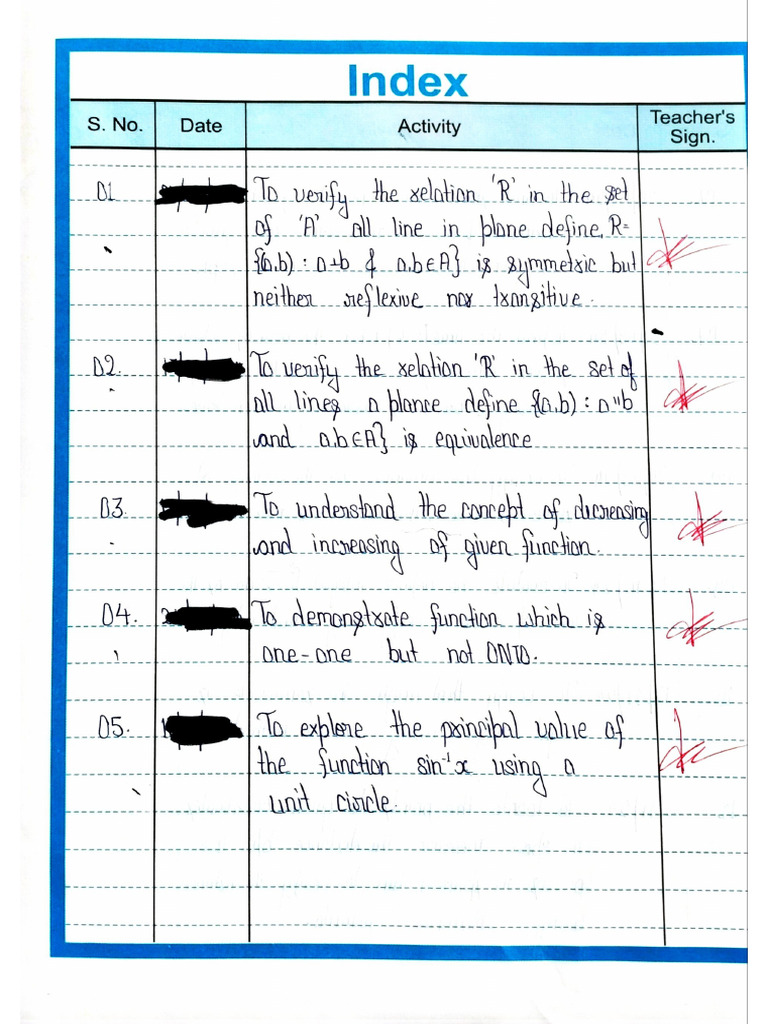 Index
S. No. Date Activity Teacher's Sign.
01 To verify the relation 'R' in the set
of 'A' all line in plane define, R=
{(a,b) : a⊥b & a,b∈A} is symmetric but
neither reflexive nor transitive.
02. To verify the relation 'R' in the set of
all lines a plance define {(a,b) : a"b
and a,b∈A} is equivalence
03. To understand the concept of dicreasing
and increasing of given function.
04. To demonstrate function which is
one-one but not ONTO.
05. To explore the principal value of
the function sin⁻¹x using a
unit circle.